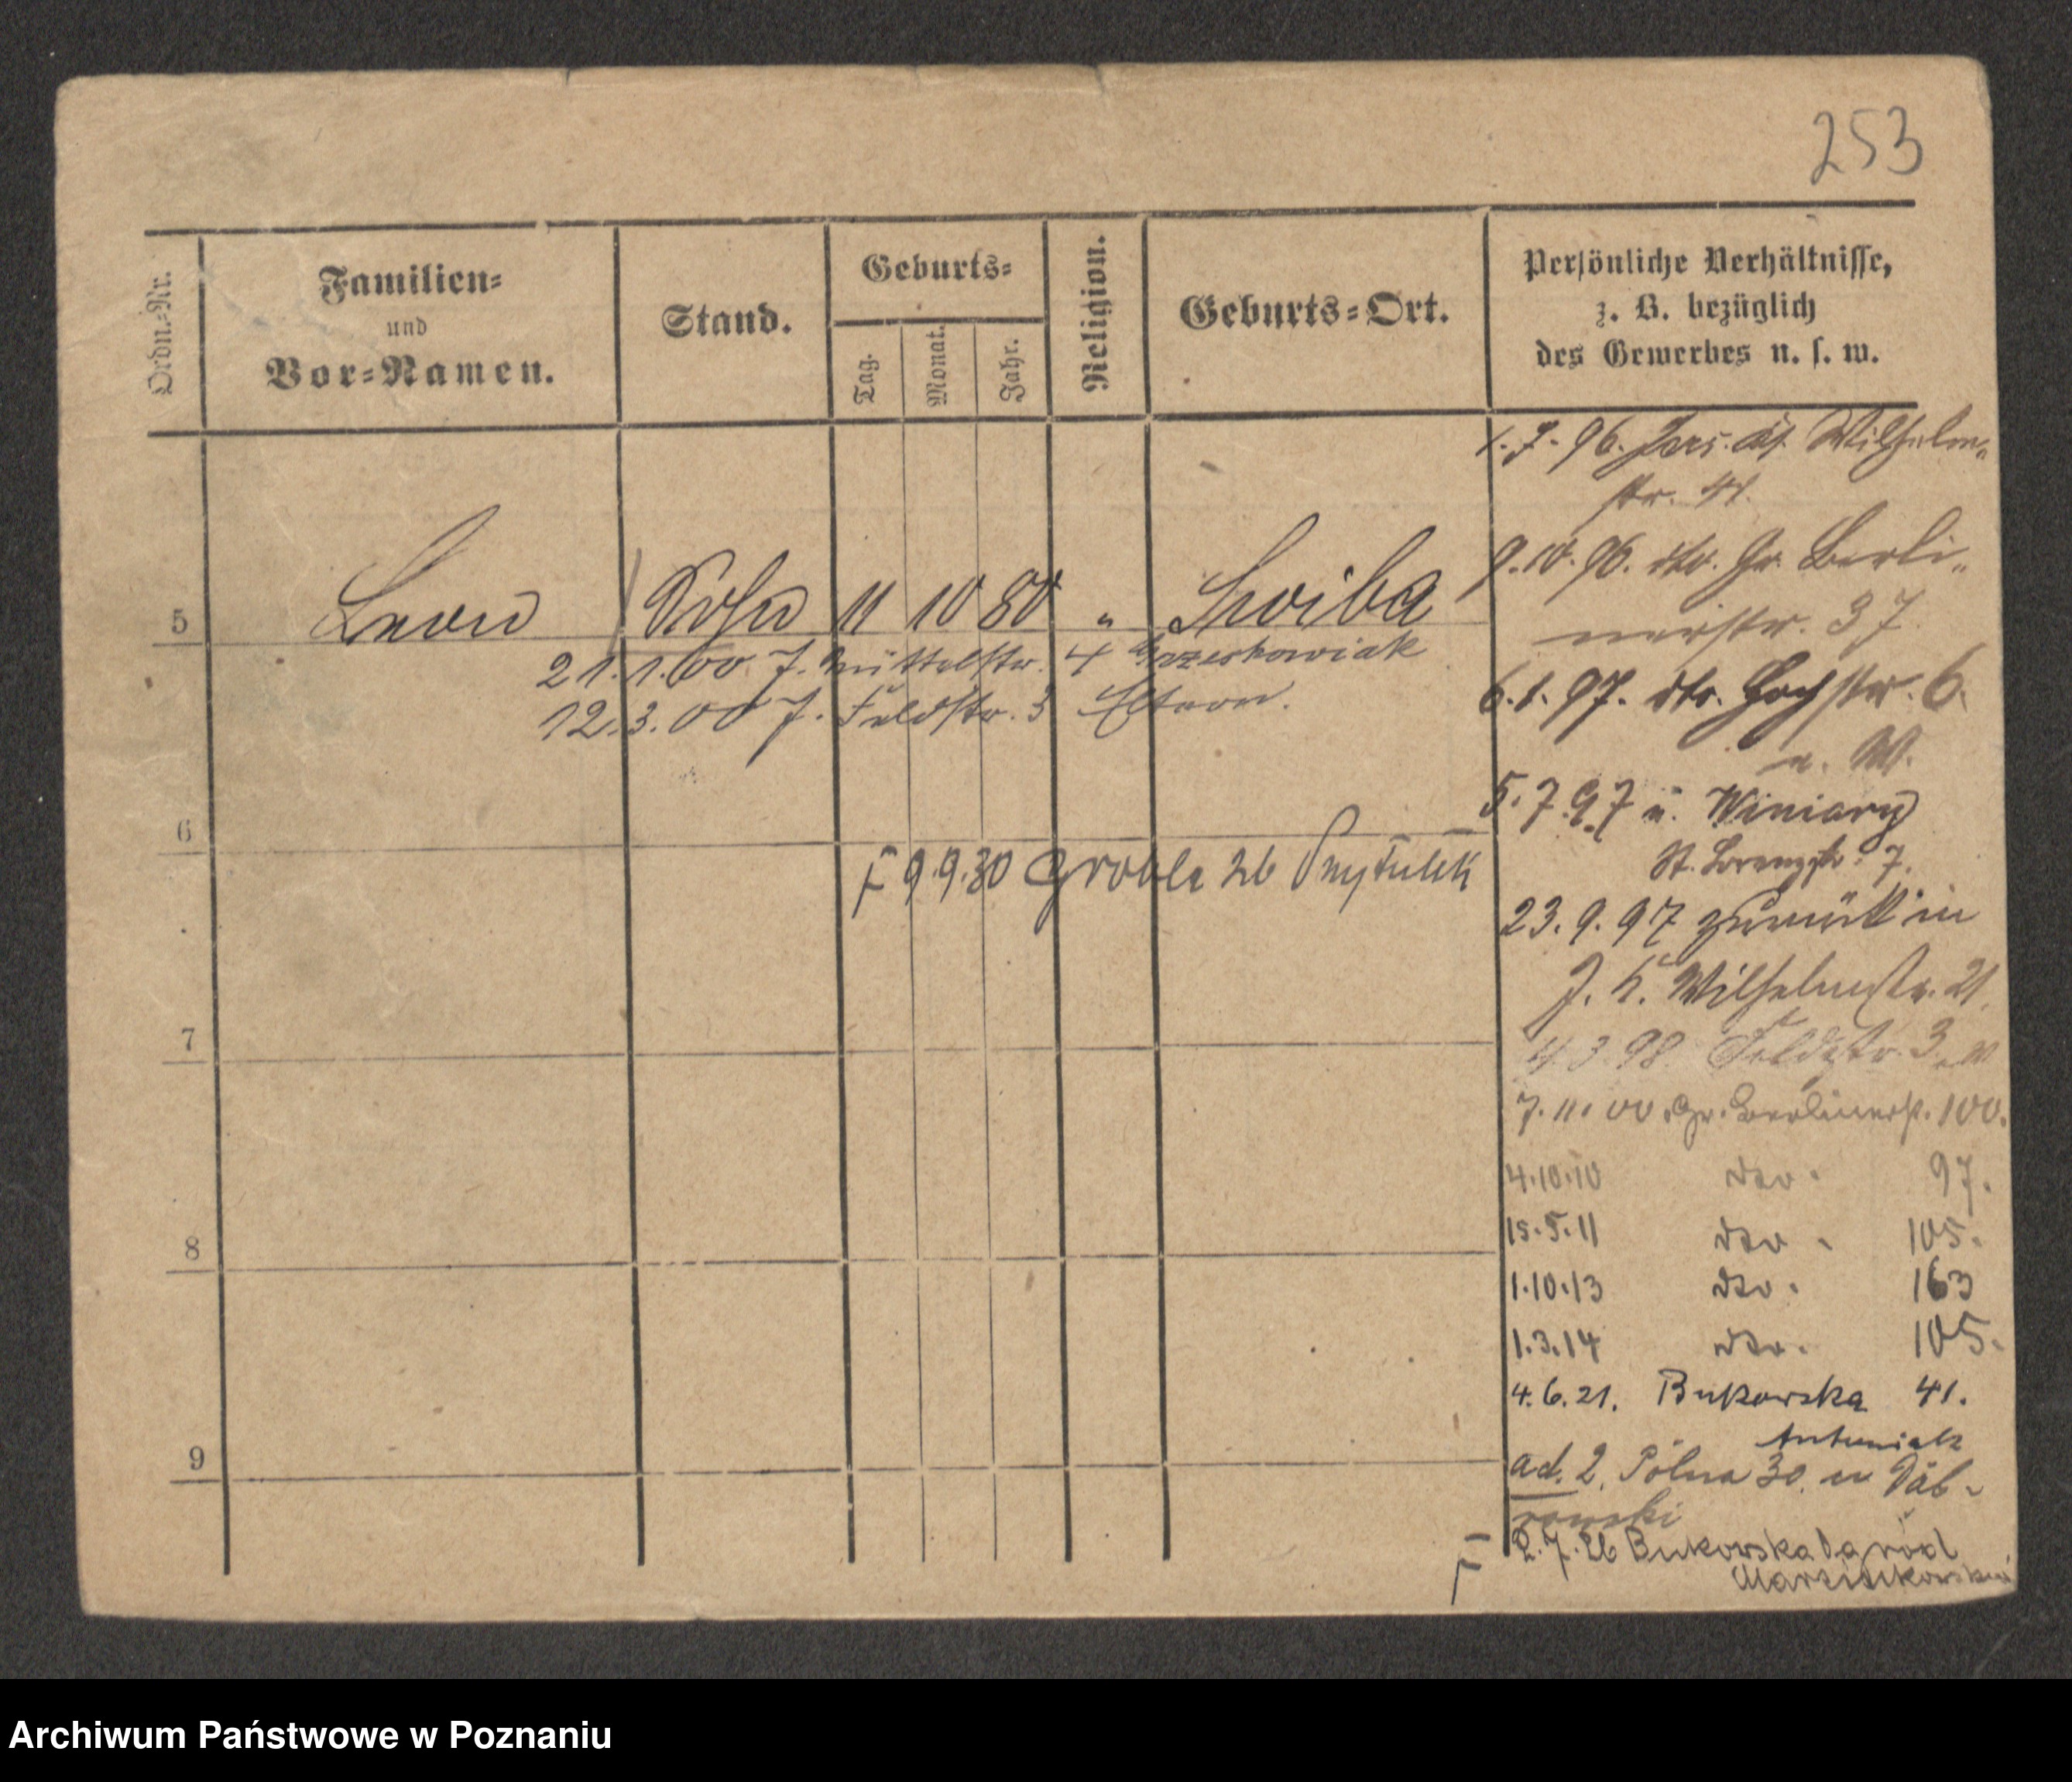 253
Ordn.=Nr.
Familien=
und
Vor=Namen.
Stand.
Geburts=
Tag.
Monat.
Jahr.
Religion.
Geburts=Ort.
Persönliche Verhältnisse,
z. B. bezüglich
des Gewerbes u. s. w.
5 Leon Sohn 11 10 80 " Skoiba
21.1.00 J. Mittelstr. 4 Grzeskowiak
12.3.00 J. Feldstr. 3 Eltern.
6
F 9.9.30 Grobla 26 Przytułek
7
8
9
1.7.96. Jers. Wilhelm=
str. 41.
9.10.96. dto. Gr. Berli=
nerstr. 37.
6.1.97. dto. Hochstr. 6.
n. W.
5.7.97 n. Winiary
St. Lorenzstr. 7.
23.9.97 zurück in
J. K. Wilhelmstr. 21.
4.3.98. Feldstr. 3.
7.11.00. Gr. Berlinerst. 100.
4.10.10 dto. 97.
15.5.11 dto. 105.
1.10.13 dto. 163
1.3.14 dto. 105.
4.6.21. Bukowska 41.
Antoniak
ad. 2. Polna 30. u Dąb-
rowski
F 2.7.26 Bukowska
Archiwum Państwowe w Poznaniu